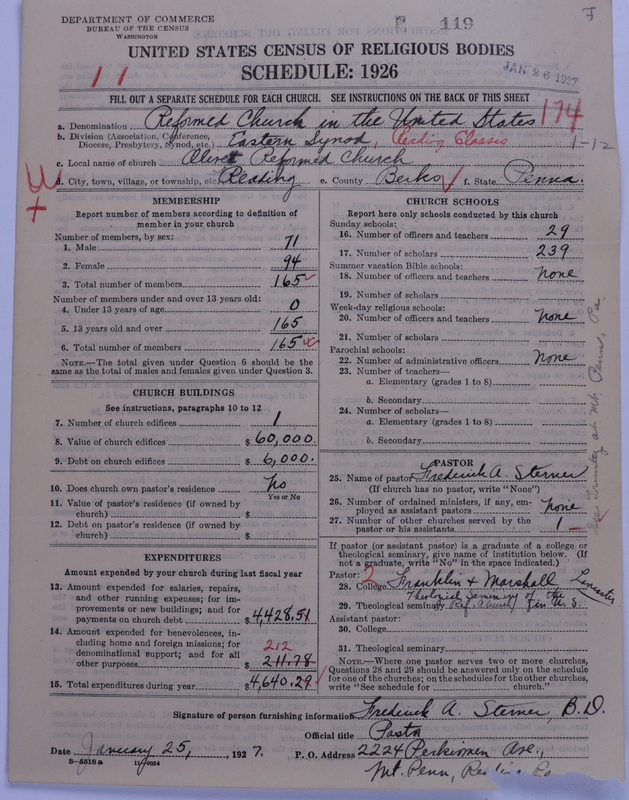 DEPARTMENT OF COMMERCE
BUREAU OF THE CENSUS
WASHINGTON
119
JAN 26 1927
UNITED STATES CENSUS OF RELIGIOUS BODIES
SCHEDULE: 1926
11
FILL OUT A SEPARATE SCHEDULE FOR EACH CHURCH. SEE INSTRUCTIONS ON THE BACK OF THIS SHEET
a. Denomination Reformed Church in the United States 174
b. Division (Association, Conference, Diocese, Presbytery, Synod, etc.) Eastern Synod, Reading Classis 1-12
c. Local name of church Olivet Reformed Church
d. City, town, village, or township, etc. Reading e. County Berks f. State Penna.
MEMBERSHIP
Report number of members according to definition of member in your church
Number of members, by sex:
1. Male 71
2. Female 94
3. Total number of members 165
Number of members under and over 13 years old:
4. Under 13 years of age 0
5. 13 years old and over 165
6. Total number of members 165
NOTE.—The total given under Question 6 should be the same as the total of males and females given under Question 3.
CHURCH BUILDINGS
See instructions, paragraphs 10 to 12
7. Number of church edifices 1
8. Value of church edifices $60,000.
9. Debt on church edifices $6,000.
10. Does church own pastor's residence No
Yes or No
11. Value of pastor's residence (if owned by church) $
12. Debt on pastor's residence (if owned by church) $
EXPENDITURES
Amount expended by your church during last fiscal year
13. Amount expended for salaries, repairs, and other running expenses; for improvements or new buildings; and for payments on church debt $4,428.51
14. Amount expended for benevolences, including home and foreign missions; for denominational support; and for all other purposes 212 $211.78
15. Total expenditures during year $4,640.29
CHURCH SCHOOLS
Report here only schools conducted by this church
Sunday schools:
16. Number of officers and teachers 29
17. Number of scholars 239
Summer vacation Bible schools:
18. Number of officers and teachers none
19. Number of scholars
Week-day religious schools:
20. Number of officers and teachers none
21. Number of scholars
Parochial schools:
22. Number of administrative officers none
23. Number of teachers—
a. Elementary (grades 1 to 8)
b. Secondary
24. Number of scholars—
a. Elementary (grades 1 to 8)
b. Secondary
See Trinity at Mt. Penn, Pa.
PASTOR
25. Name of pastor Frederick A. Sterner
(If church has no pastor, write "None")
26. Number of ordained ministers, if any, employed as assistant pastors none
27. Number of other churches served by the pastor or his assistants 1
If pastor (or assistant pastor) is a graduate of a college or theological seminary, give name of institution below. (If not a graduate, write "No" in the space indicated.)
Pastor: 2
28. College Franklin & Marshall Lancaster
29. Theological seminary Theological Seminary of the Ref. Church in U.S.
Assistant pastor:
30. College
31. Theological seminary
NOTE.—Where one pastor serves two or more churches, Questions 28 and 29 should be answered only on the schedule for one of the churches; on the schedules for the other churches, write "See schedule for church."
Signature of person furnishing information Frederick A. Sterner, B.D.
Official title Pastor
Date January 25, 1927. P. O. Address 2224 Perkiomen Ave.,
Mt. Penn, Reading Pa
8-5518a